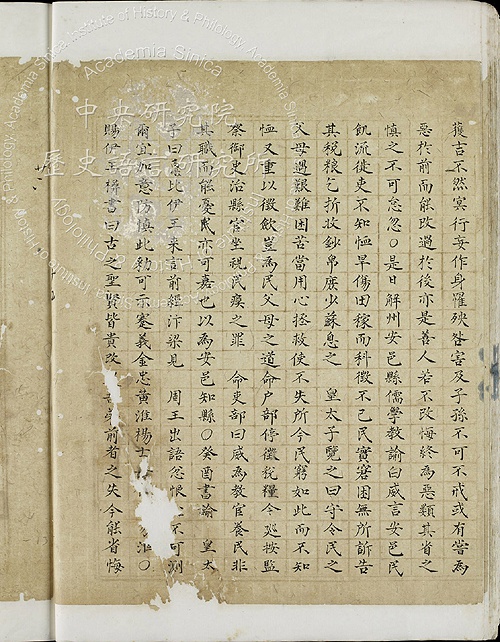 獲吉不然寔行妄作身罹殃咎害及子孫不可不戒或有嘗為
惡於前而能改過於後亦是善人若不改悔終為惡類其省之
慎之不可怠忽○是日解州安邑縣儒學教諭白威言安邑民
飢流徙吏不知恤旱傷田稼而科徵不已民實窘困無所訴告
其稅粮乞折收鈔帛庶少蘇息之 皇太子覽之曰守令民之
父母遇艱難困苦當用心拯救使不失所今民窮如此而不知
恤又重以徵歛豈為民父母之道命户部停徵稅糧今廵按監
察御史治縣官坐視民瘼之罪 命吏部曰威為教官養民非
其職而能憂民亦可嘉也以為安邑知縣○癸酉書諭 皇太
子曰急比伊王来言前經汴梁見 周王出語忿恨 不可測
爾宜加意防慎此勑可示蹇義金忠黃淮楊士 淮○
賜伊王㭎書曰古之聖賢皆貴改 前者之失今能省悔
中央研究院
歷史語言研究所
Institute of History & Philology, Academia Sinica